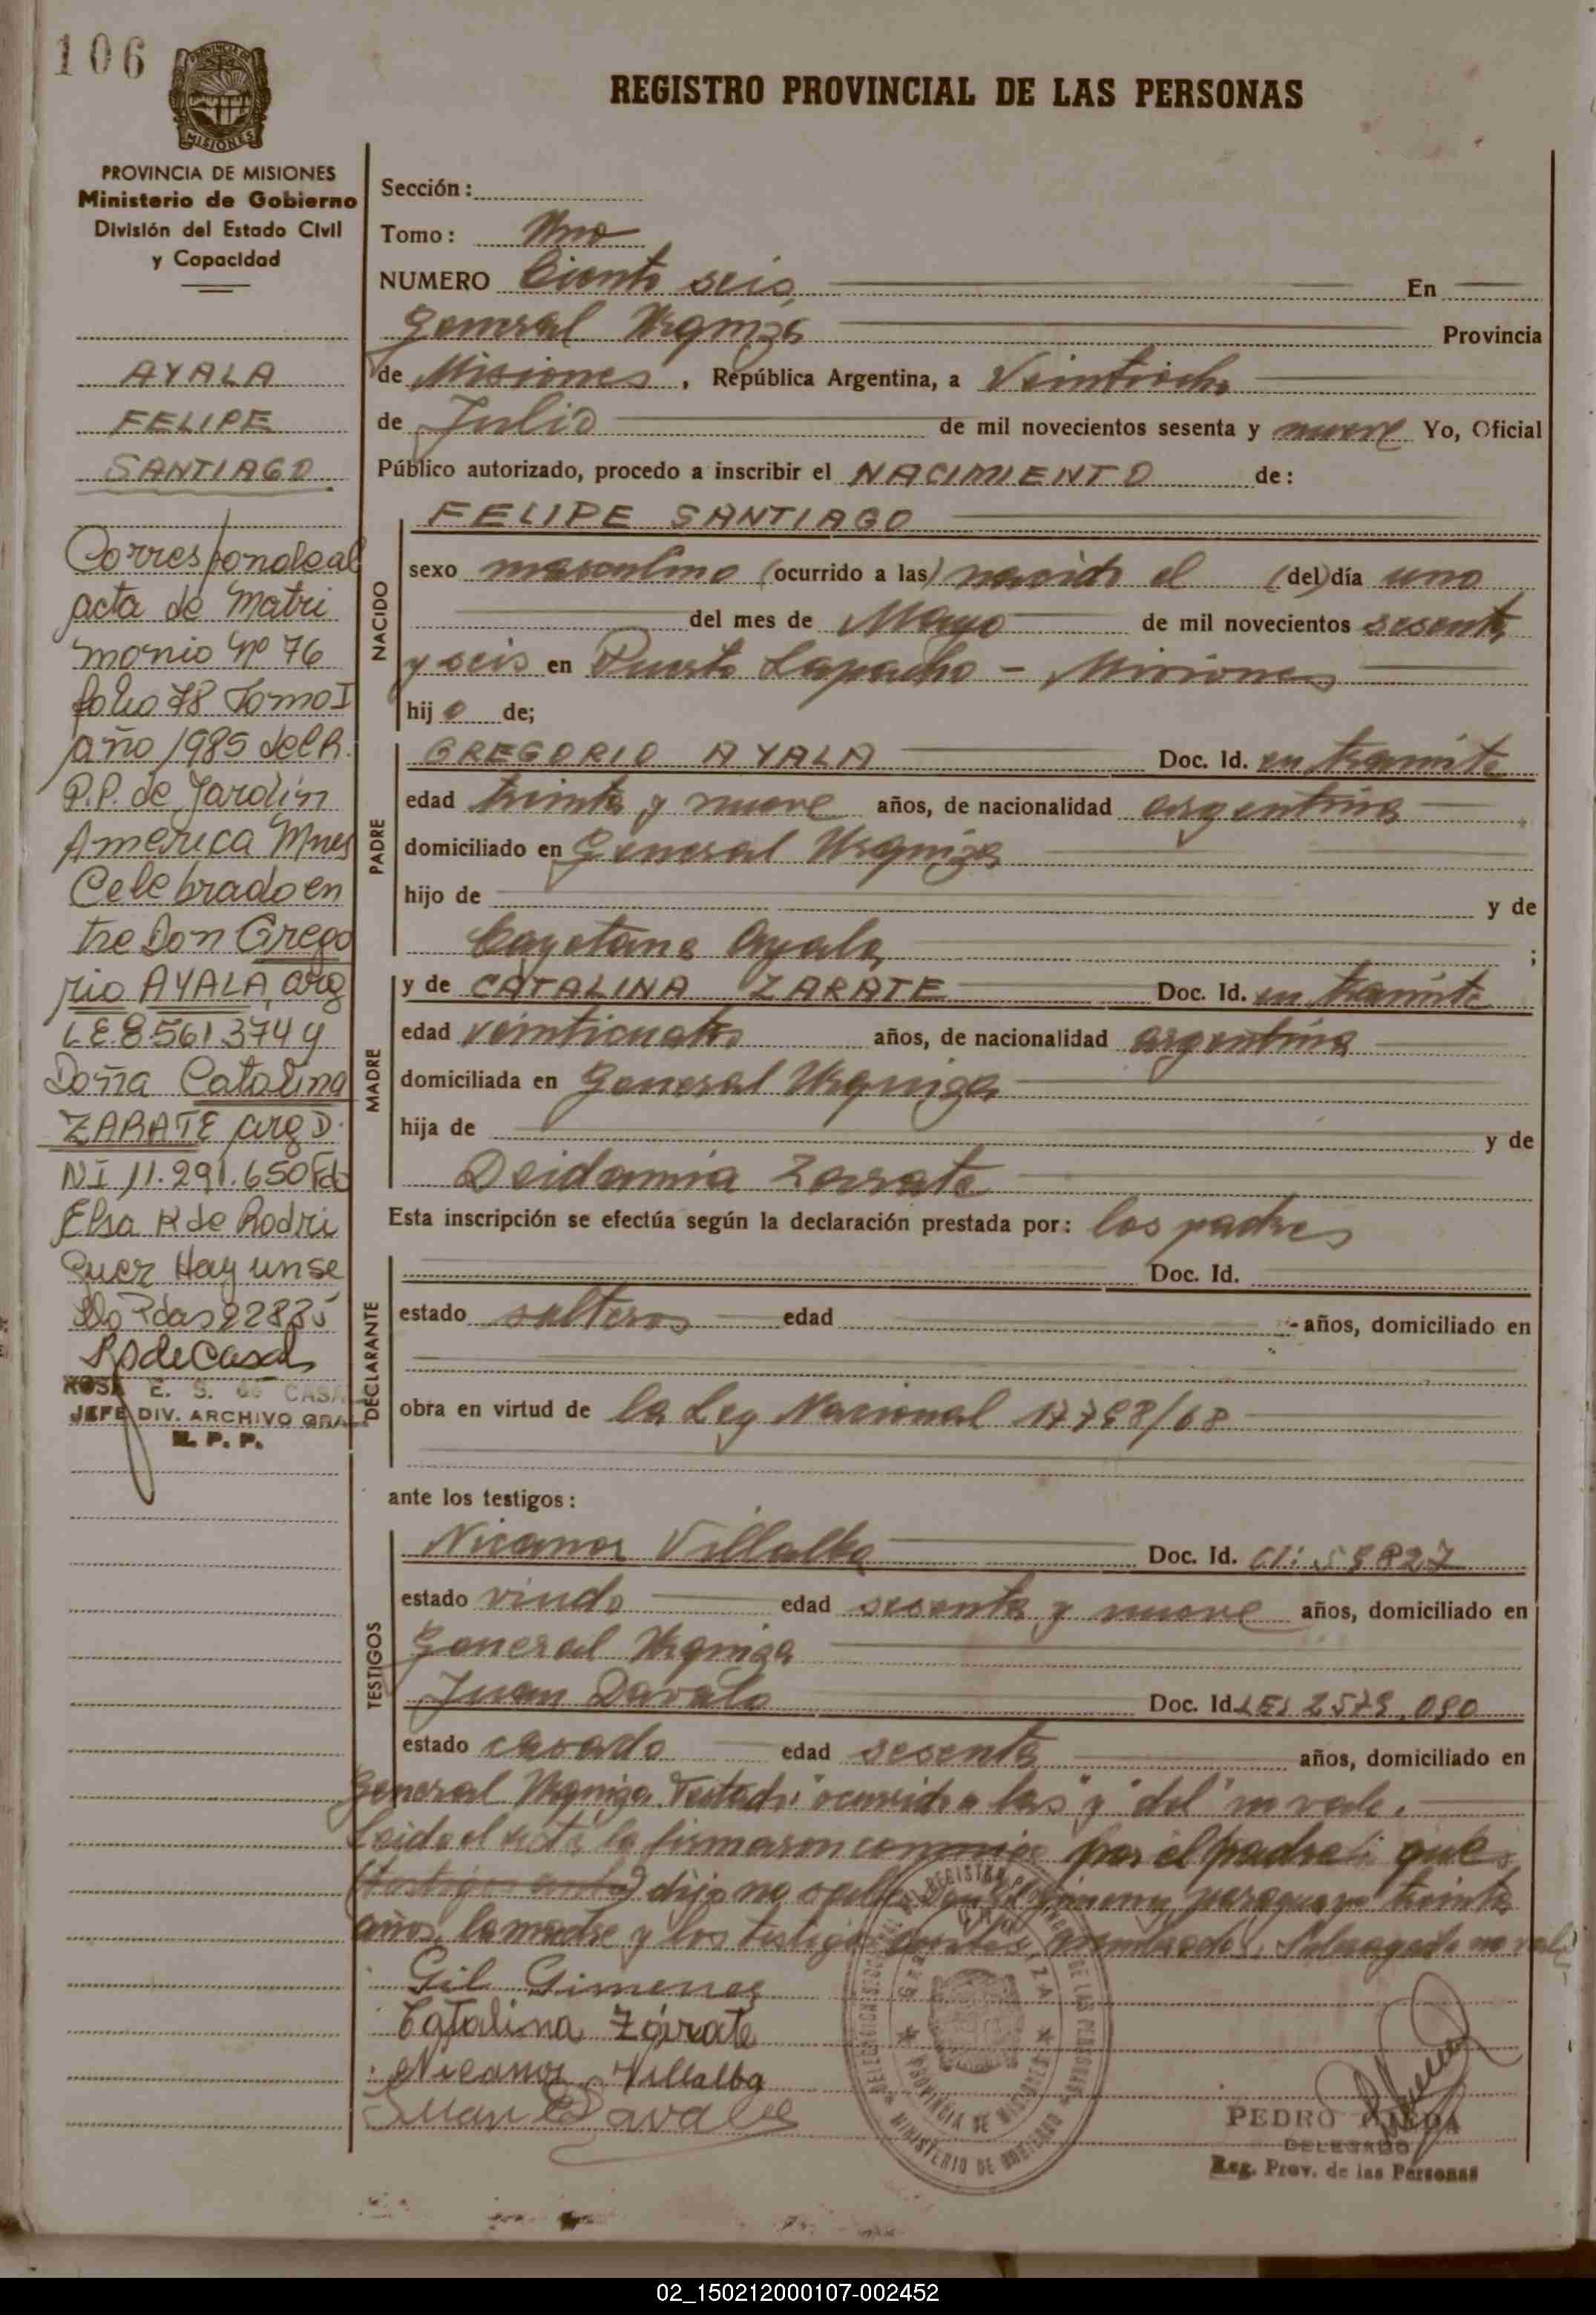 106
PROVINCIA DE MISIONES
Ministerio de Gobierno
División del Estado Civil
y Capacidad
AYALA
FELIPE
SANTIAGO
Corresponde al
acta de Matri
monio Nº 76
folio 78 Tomo I
año 1985 del R.
P.P. de Jardín
America Mnes
Celebrado en
tre Don Grego
rio AYALA, arg
L.E. 8561374 y
Doña Catalina
ZARATE arg D.
NI 11.291.650 Fdo
Elsa R de Rodri
guez Hay un se
llo Pdas 22885
RSdeCasal
ROSA E. S. de CASAL
JEFE DIV. ARCHIVO GRAL
R. P. P.
REGISTRO PROVINCIAL DE LAS PERSONAS
Sección:
Tomo: Uno
NUMERO Ciento seis En
General Urquiza Provincia
de Misiones, República Argentina, a Veintiocho
de Julio de mil novecientos sesenta y nueve Yo, Oficial
Público autorizado, procedo a inscribir el NACIMIENTO de:
FELIPE SANTIAGO
NACIDO
sexo masculino (ocurrido a las) nacido el (del) día uno
del mes de Mayo de mil novecientos sesenta
y seis en Puerto Lapacho - Misiones
hijo de;
PADRE
GREGORIO AYALA Doc. Id. en tramite
edad treinta y nueve años, de nacionalidad argentina
domiciliado en General Urquiza
hijo de y de
Cayetana Ayala ;
MADRE
y de CATALINA ZARATE Doc. Id. en tramite
edad veinticuatro años, de nacionalidad argentina
domiciliada en General Urquiza
hija de y de
Deidamia Zarrate
Esta inscripción se efectúa según la declaración prestada por: los padres
DECLARANTE
Doc. Id.
estado solteros edad años, domiciliado en
obra en virtud de la Ley Nacional
ante los testigos:
TESTIGOS
Nicanor Villalba Doc. Id. CI: 59827
estado viudo edad sesenta y nueve años, domiciliado en
General Urquiza
Juan Davalo Doc. Id LE: 2579.090
estado casado edad sesenta años, domiciliado en
General Urquiza. Testado: "ocurrido a las" y "del" no vale.
Leido el acta la firmaron conmigo por el padre que
dijo no paraguayo treinta
años, la madre y los testigos no vale
Gil Gimenez
Catalina Zárate
Nicanor Villalba
Juan Davalos
DELEGACION REGISTRO PROVINCIAL DE LAS PERSONAS
GRAL. URQUIZA
PROVINCIA DE MISIONES
MINISTERIO DE GOBIERNO
PEDRO OJEDA
DELEGADO
Reg. Prov. de las Personas
02_150212000107-002452